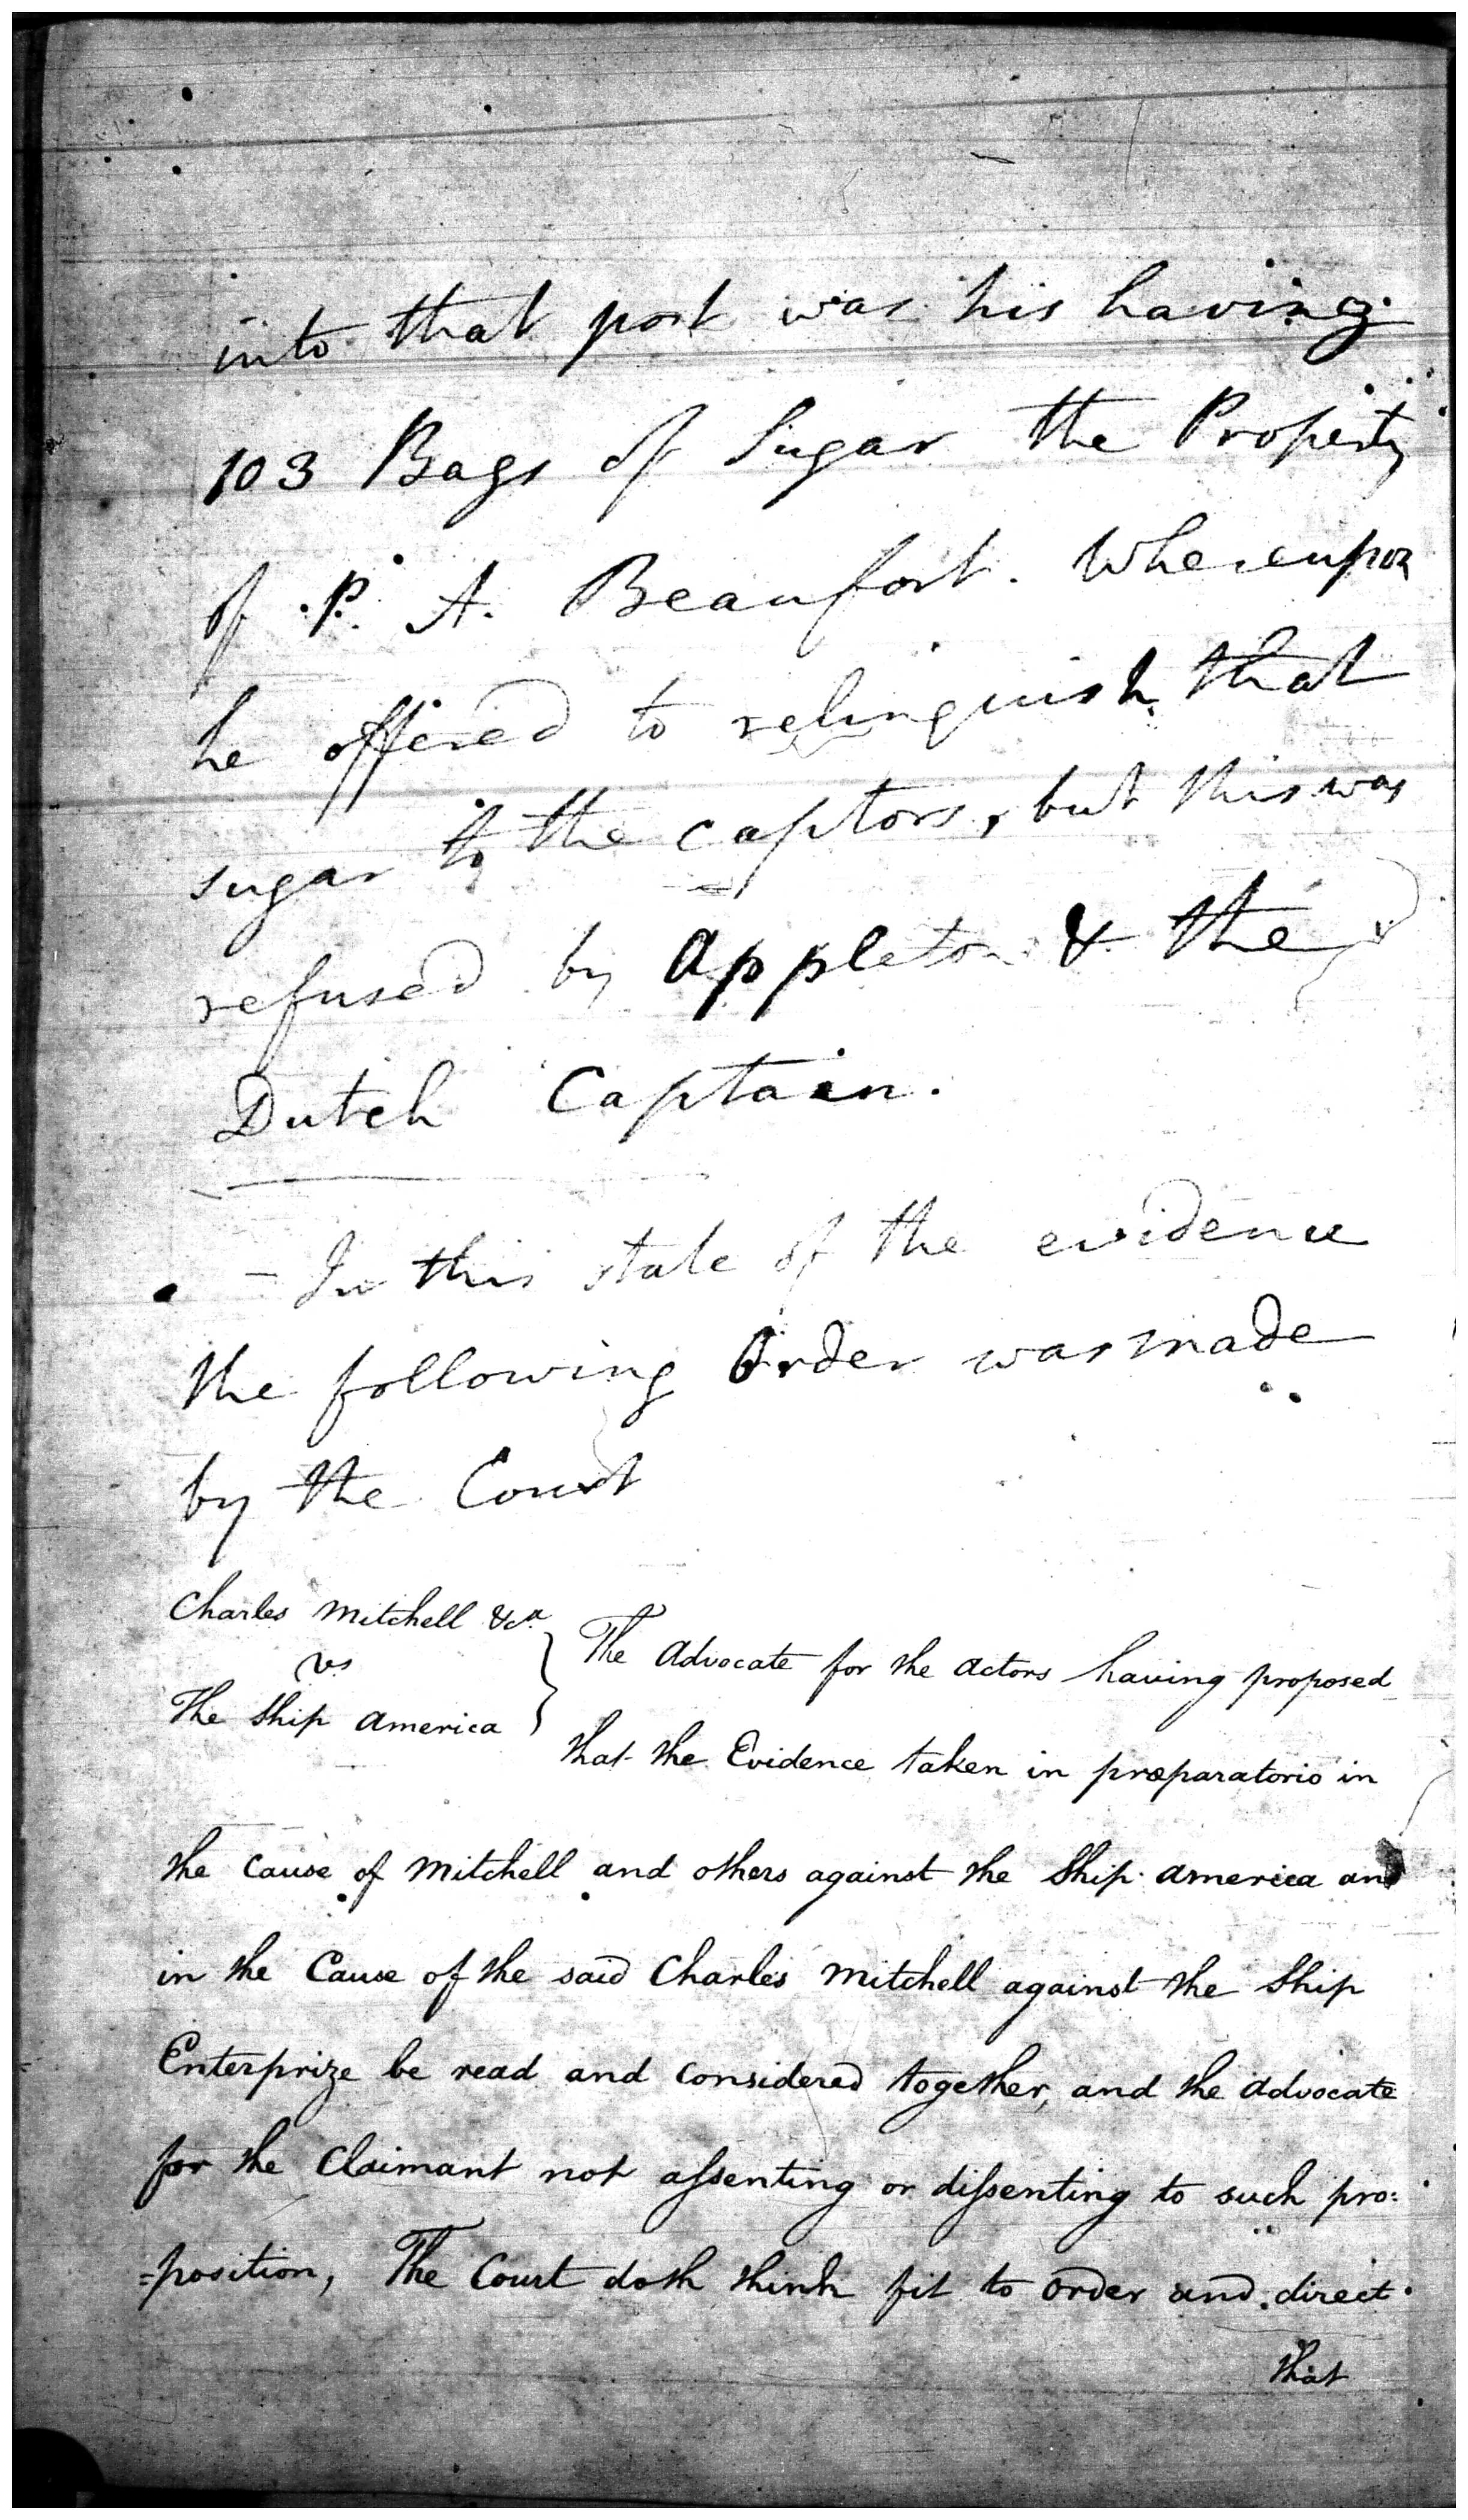 into that port was his having
103 Bags of Sugar the Property
of P. A. Beaufort. Whereupon
he offered to relinquish that
sugar to the captors, but this was
refused by Appleton & the
Dutch Captain.
- In this state of the evidence
the following Order was made
by the Court
Charles Mitchell &ca.
vs
The Ship America
The Advocate for the Actors having proposed
that the Evidence taken in præparatorio in
the Cause of Mitchell and others against the Ship America and
in the Cause of the said Charles Mitchell against the Ship
Enterprize be read and considered together, and the Advocate
for the Claimant not aſsenting or diſsenting to such pro=
=position, The Court doth think fit to order and direct
that